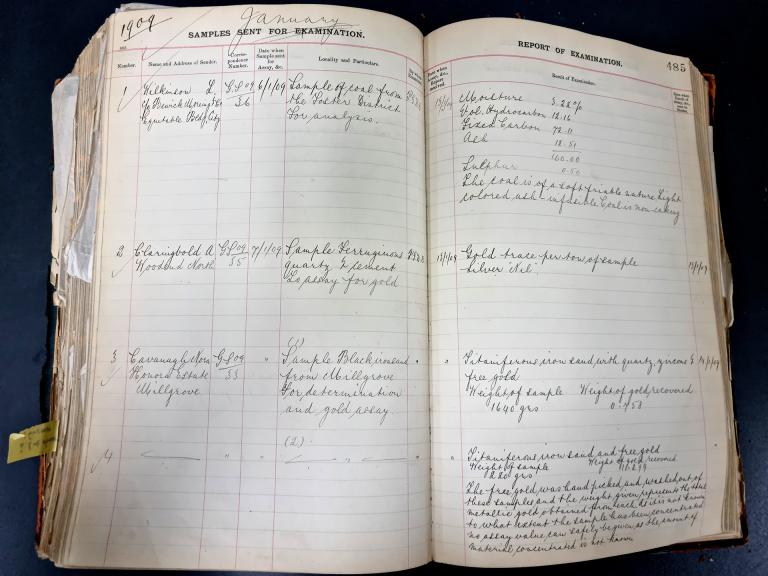 1909 January
SAMPLES SENT FOR EXAMINATION.
Number.
Name and Address of Sender.
Correspondence Number.
Date when Sample sent for Assay, &c.
Locality and Particulars.
1
Wilkinson L.
Equitable Bldgs City
GS 09
56
6/1/09
Sample of coal from
the Foster District
For analysis.
2
Claringbold A
Woodend North
GS 09
55
7/1/09
Sample Ferruginous
quartz & cement
To assay for gold
3
Cavanagh Nora
Honora Estate
Millgrove
GS 09
53
"
(1)
Sample Black iron sand
from Millgrove
For determination
and gold assay.
4
"
"
(2)
"
REPORT OF EXAMINATION.
485
Result of Examination.
Moisture 5.22%
Vol. Hydrocarbon 12.16
Fixed Carbon 72.11
Ash 12.51
100.00
Sulphur 0.50
The coal is of a soft friable nature Light
colored ash - infusible Coal is non-caking
12/1/09
Gold trace per ton of sample
Silver "Nil"
13/1/09
"
Titaniferous iron sand with quartz, zircons &
free gold
Weight of sample Weight of gold recovered
1640 grs 0.758
"
Titaniferous iron sand and free gold
Weight of sample Weight of gold recovered
220 grs
The free gold was hand picked and washed out of
these samples and the weight given represents the total
metallic gold obtained from each. As it is not known
to what extent the sample has been concentrated
no assay value can safely be given as the amount of
material concentrated is not known